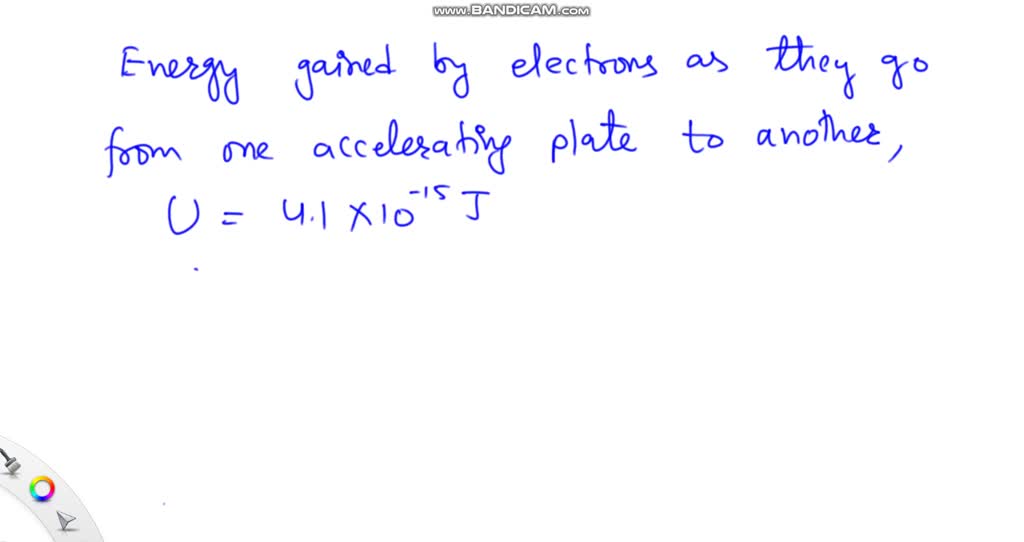 www.BANDICAM.com
Energy gained by electrons as they go
from one accelerating plate to another,
U = 4.1 × 10⁻¹⁵ J